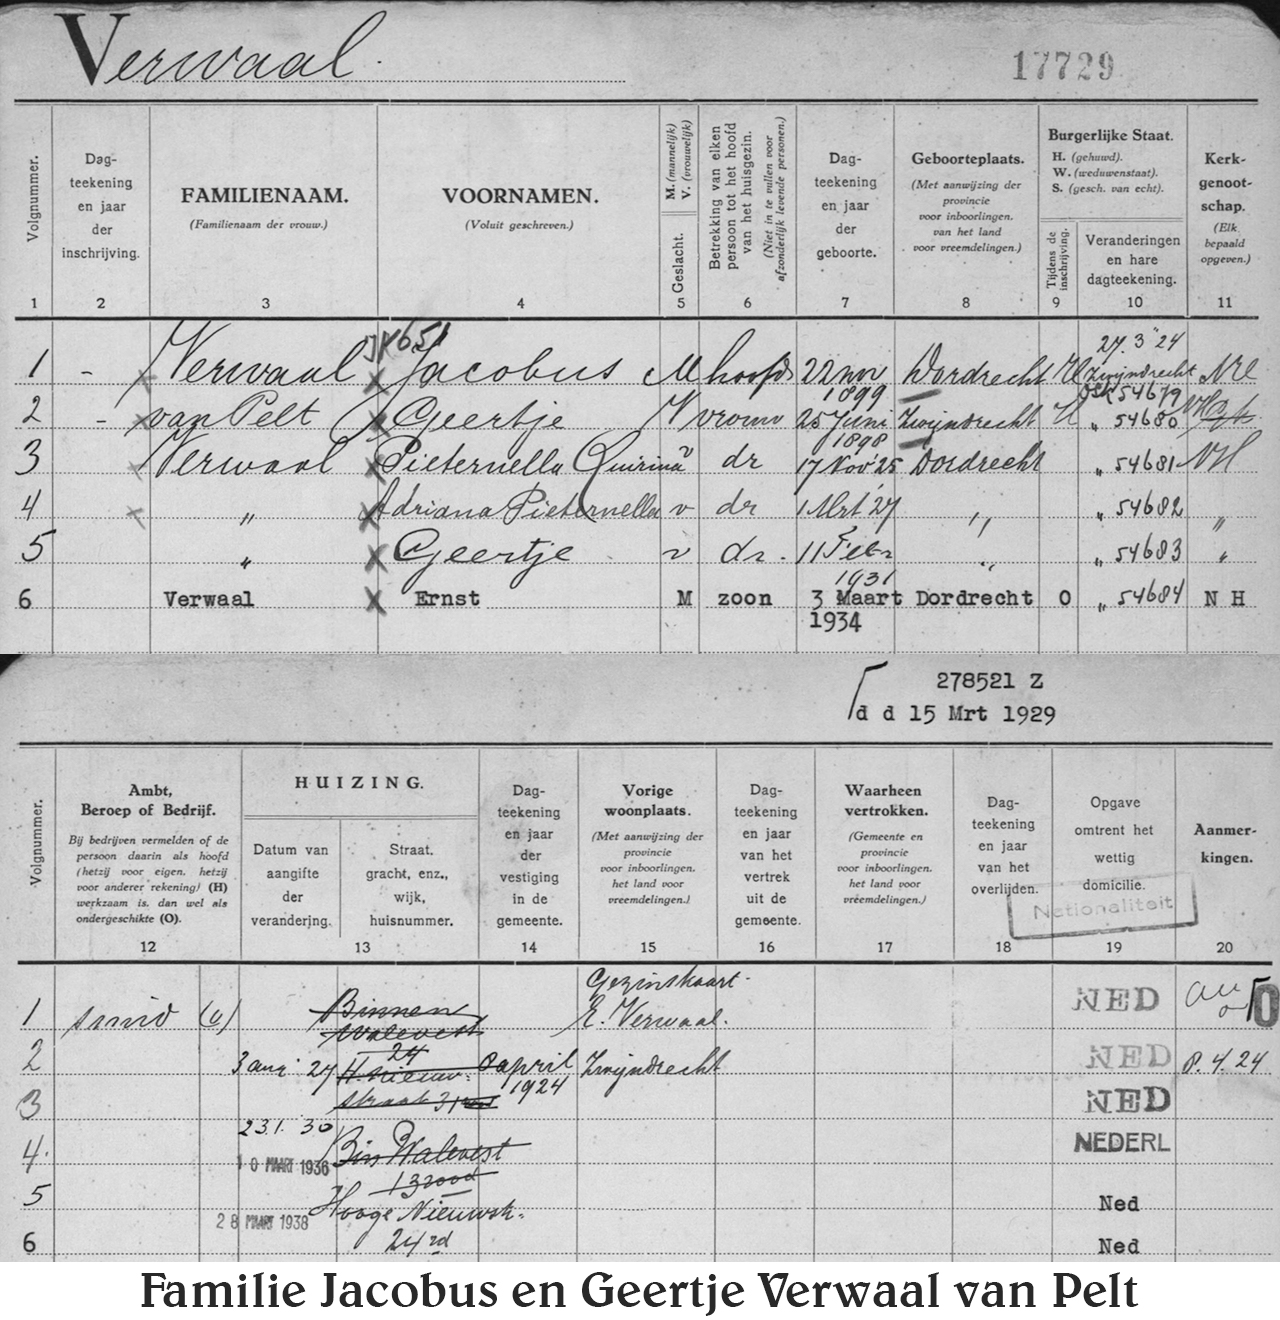 Verwaal
17729
Volgnummer.
Dag-
teekening
en jaar
der
inschrijving.
FAMILIENAAM.
(Familienaam der vrouw.)
VOORNAMEN.
(Voluit geschreven.)
M. (mannelijk)
V. (vrouwelijk)
Geslacht.
Betrekking van elken
persoon tot het hoofd
van het huisgezin.
(Niet in te vullen voor
afzonderlijk levende personen.)
Dag-
teekening
en jaar
der
geboorte.
Geboorteplaats.
(Met aanwijzing der
provincie
voor inboorlingen,
van het land
voor vreemdelingen.)
Burgerlijke Staat.
H. (gehuwd).
W. (weduwenstaat).
S. (gesch. van echt).
Tijdens de
inschrijving.
Veranderingen
en hare
dagteekening.
Kerk-
genoot-
schap.
(Elk
bepaald
opgeven.)
1 2 3 4 5 6 7 8 9 10 11
27.3 "24
1 - Verwaal Jacobus M hoofd 22 nov 1899 Dordrecht H Zwijndrecht
54679
2 - van Pelt Geertje V vrouw 25 Juni 1898 Zwijndrecht H " 54680
3 Verwaal Pieternella Quirina v dr 17 Nov '25 Dordrecht " 54681 NH
4 " Adriana Pieternella v dr 1 Mrt '27 " " 54682 "
5 " Geertje v dr. 11 Febr 1931 " " 54683 "
6 Verwaal Ernst M zoon 3 Maart Dordrecht O " 54684 N H
1934
278521 Z
d d 15 Mrt 1929
Volgnummer.
Ambt,
Beroep of Bedrijf.
Bij bedrijven vermelden of de
persoon daarin als hoofd
(hetzij voor eigen, hetzij
voor anderer rekening) (H)
werkzaam is, dan wel als
ondergeschikte (O).
HUIZING.
Datum van
aangifte
der
verandering.
Straat,
gracht, enz.,
wijk,
huisnummer.
Dag-
teekening
en jaar
der
vestiging
in de
gemeente.
Vorige
woonplaats.
(Met aanwijzing der
provincie
voor inboorlingen,
het land voor
vreemdelingen.)
Dag-
teekening
en jaar
van het
vertrek
uit de
gemeente.
Waarheen
vertrokken.
(Gemeente en
provincie
voor inboorlingen,
het land voor
vreemdelingen.)
Dag-
teekening
en jaar
van het
overlijden.
Opgave
omtrent het
wettig
domicilie.
Nationaliteit
Aanmer-
kingen.
12 13 14 15 16 17 18 19 20
Gezinskaart
1 smid Binnen E. Verwaal. NED
Walevest
24
2 3 27 H. Nieuw- april Zwijndrecht NED 8.4.24
1924
3 straat NED
23.1.30
4. Bin Walevest NEDERL
10 MAART 1936
5 Hooge Nieuwstr. Ned
28 MAART 1938
6 24 rd Ned
Familie Jacobus en Geertje Verwaal van Pelt